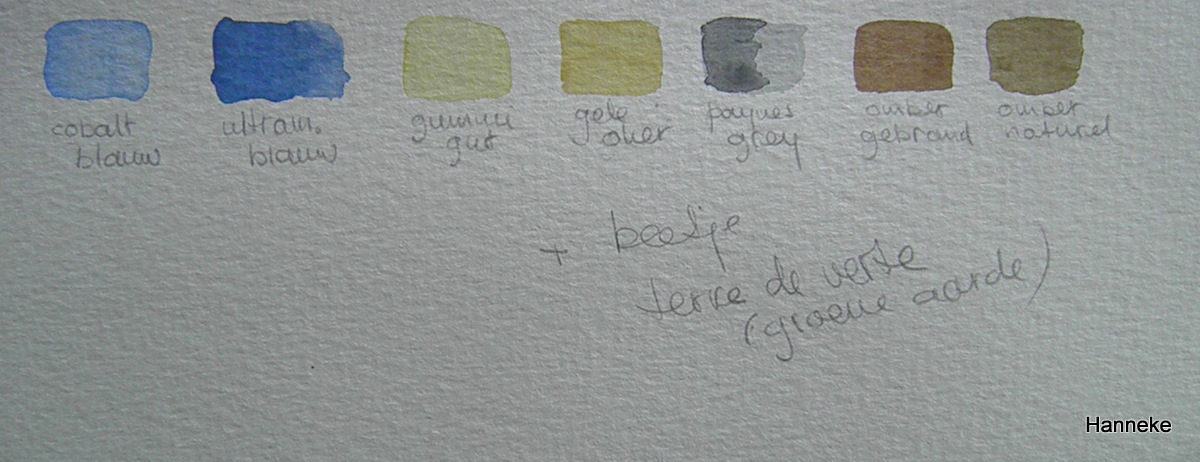 cobalt
blauw
ultram.
blauw
gummi
gut
gele
oker
paynes
grey
omber
gebrand
omber
naturel
+ beetje
terre de verte
(groene aarde)
Hanneke